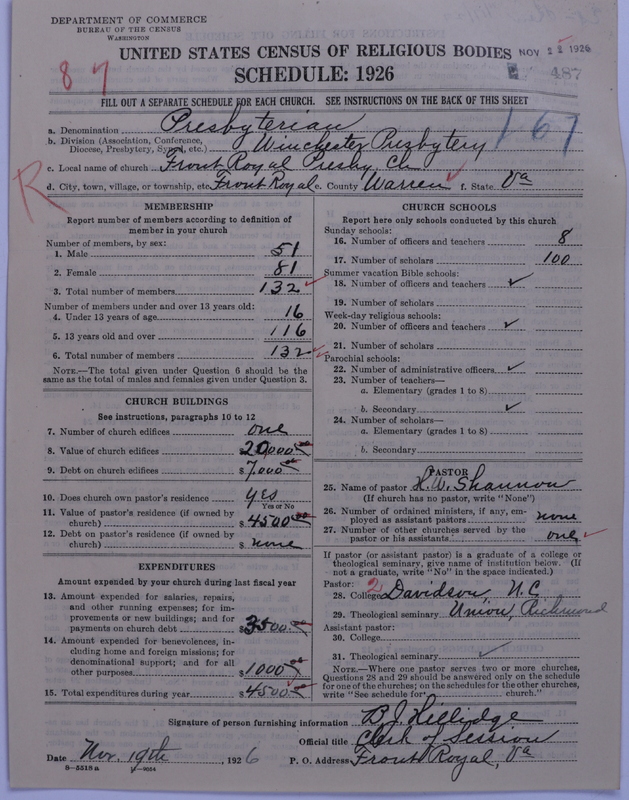 DEPARTMENT OF COMMERCE
BUREAU OF THE CENSUS
WASHINGTON
UNITED STATES CENSUS OF RELIGIOUS BODIES
NOV 22 1926
SCHEDULE: 1926
87
487
FILL OUT A SEPARATE SCHEDULE FOR EACH CHURCH. SEE INSTRUCTIONS ON THE BACK OF THIS SHEET
167
R
a. Denomination Presbyterian
b. Division (Association, Conference, Diocese, Presbytery, Synod, etc.) Winchester Presbytery
c. Local name of church Front Royal Presby. Ch
d. City, town, village, or township, etc. Front Royal e. County Warren f. State Va
MEMBERSHIP
Report number of members according to definition of member in your church
Number of members, by sex:
1. Male 51
2. Female 81
3. Total number of members 132
Number of members under and over 13 years old:
4. Under 13 years of age 16
5. 13 years old and over 116
6. Total number of members 132
NOTE.—The total given under Question 6 should be the same as the total of males and females given under Question 3.
CHURCH BUILDINGS
See instructions, paragraphs 10 to 12
7. Number of church edifices one
8. Value of church edifices $20,000.00
9. Debt on church edifices $7,000.00
10. Does church own pastor's residence yes
Yes or No
11. Value of pastor's residence (if owned by church) $4500.00
12. Debt on pastor's residence (if owned by church) $none
EXPENDITURES
Amount expended by your church during last fiscal year
13. Amount expended for salaries, repairs, and other running expenses; for improvements or new buildings; and for payments on church debt $3500.00
14. Amount expended for benevolences, including home and foreign missions; for denominational support; and for all other purposes $1000.00
15. Total expenditures during year $4500.00
CHURCH SCHOOLS
Report here only schools conducted by this church
Sunday schools:
16. Number of officers and teachers 8
17. Number of scholars 100
Summer vacation Bible schools:
18. Number of officers and teachers ✓
19. Number of scholars
Week-day religious schools:
20. Number of officers and teachers ✓
21. Number of scholars
Parochial schools:
22. Number of administrative officers ✓
23. Number of teachers—
a. Elementary (grades 1 to 8)
b. Secondary ✓
24. Number of scholars—
a. Elementary (grades 1 to 8)
b. Secondary
PASTOR
25. Name of pastor H.W. Shannon
(If church has no pastor, write "None")
26. Number of ordained ministers, if any, employed as assistant pastors none
27. Number of other churches served by the pastor or his assistants one
If pastor (or assistant pastor) is a graduate of a college or theological seminary, give name of institution below. (If not a graduate, write "No" in the space indicated.)
Pastor: 2
28. College Davidson N.C
29. Theological seminary Union, Richmond
Assistant pastor:
30. College
31. Theological seminary ✓
NOTE.—Where one pastor serves two or more churches, Questions 28 and 29 should be answered only on the schedule for one of the churches; on the schedules for the other churches, write "See schedule for church."
Signature of person furnishing information B.J. Hillidge
Official title Clerk of Session
Date Nov. 19th, 1926 P. O. Address Front Royal, Va
8—5518 a 11—9024